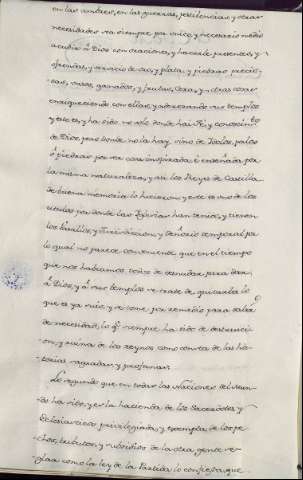 en las hambres, en las guerras, pestilencias, y otras
necesidades va siempre por unico, y necesario medio
acudir á Dios con oraciones, y hacerle presentes, y
ofrendas, y servicio de oro, y plata, y piedras precio-
sas, vasos, ganados, y frutas, cera, y otras cosas
enriqueciendo con ellas, y adornando sus templos
y esto es, y ha sido no solo donde hai Fé, y conocim.to
de Dios, pero donde no la hay, sino de Ydolos, palos
ó piedras por ser cosa inspirada é enseñada por
la misma naturaleza, y asi los Reyes de Castilla
de buena memoria lo hicieron, y este es uno de los
titulos por donde las Yglesias han tenido, y tienen
los basallos, y Jurisdiccion, y Señorio temporal por
lo qual no parece conveniente que en el tiempo
que nos habiamos todos de desnudar para dar
á Dios, y á sus templos se trate de quitarles lo
que es ya suio, y se tome por remedio para salir
de necesidad, lo q.e siempre ha sido de destrucci-
on, y ruina de los reynos como consta de las his-
torias sagradas, y profanas.
Lo segundo que en todas las Naciones del Mun-
do ha sido, y es la hacienda de los Sacerdotes, y
Eclesiasticos privilegiada, y esempta de los pe-
chos, tributos, y subsidios de la otra gente se-
glar como la ley de la Partida lo confiesa, que